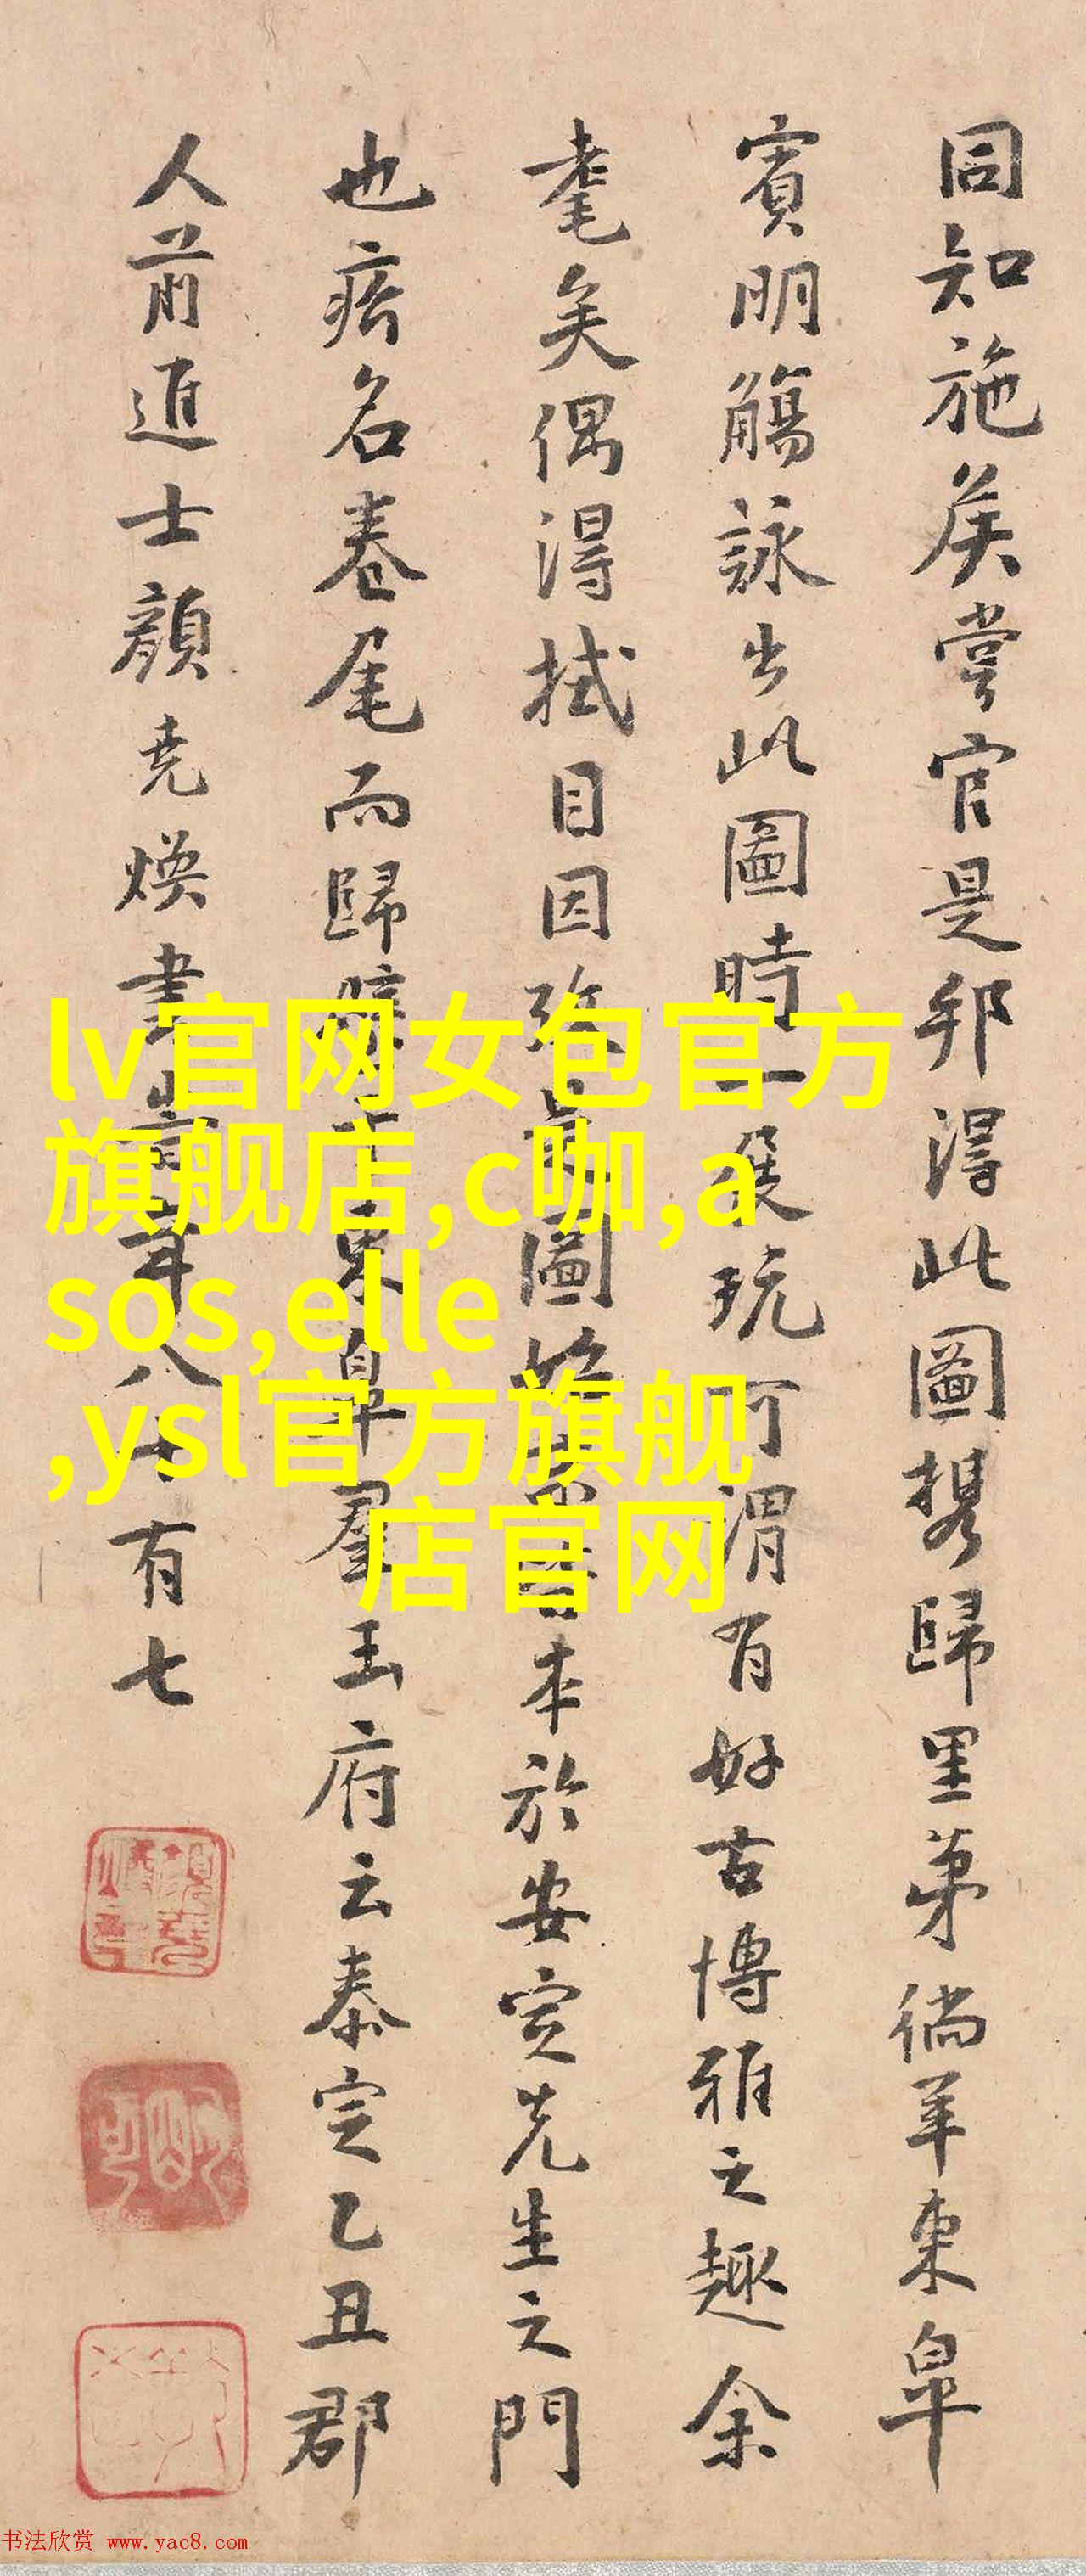 同知施矦嘗官是邦得此圖携歸里苐徜羊東皐
賓朙觴詠出此圖時一展玩可謂有好古博雅之趣余
耄矣偶得拭目因攷是圖本於安定先生之門
也名卷尾而歸東皐羣玉府云泰定乙丑郡
人前進士顔堯煥書旹年八十有七
lv官网女包官方
旗舰店,c咖,a
sos,elle
,ysl官方旗舰
店官网
书法欣赏 www.yac8.com